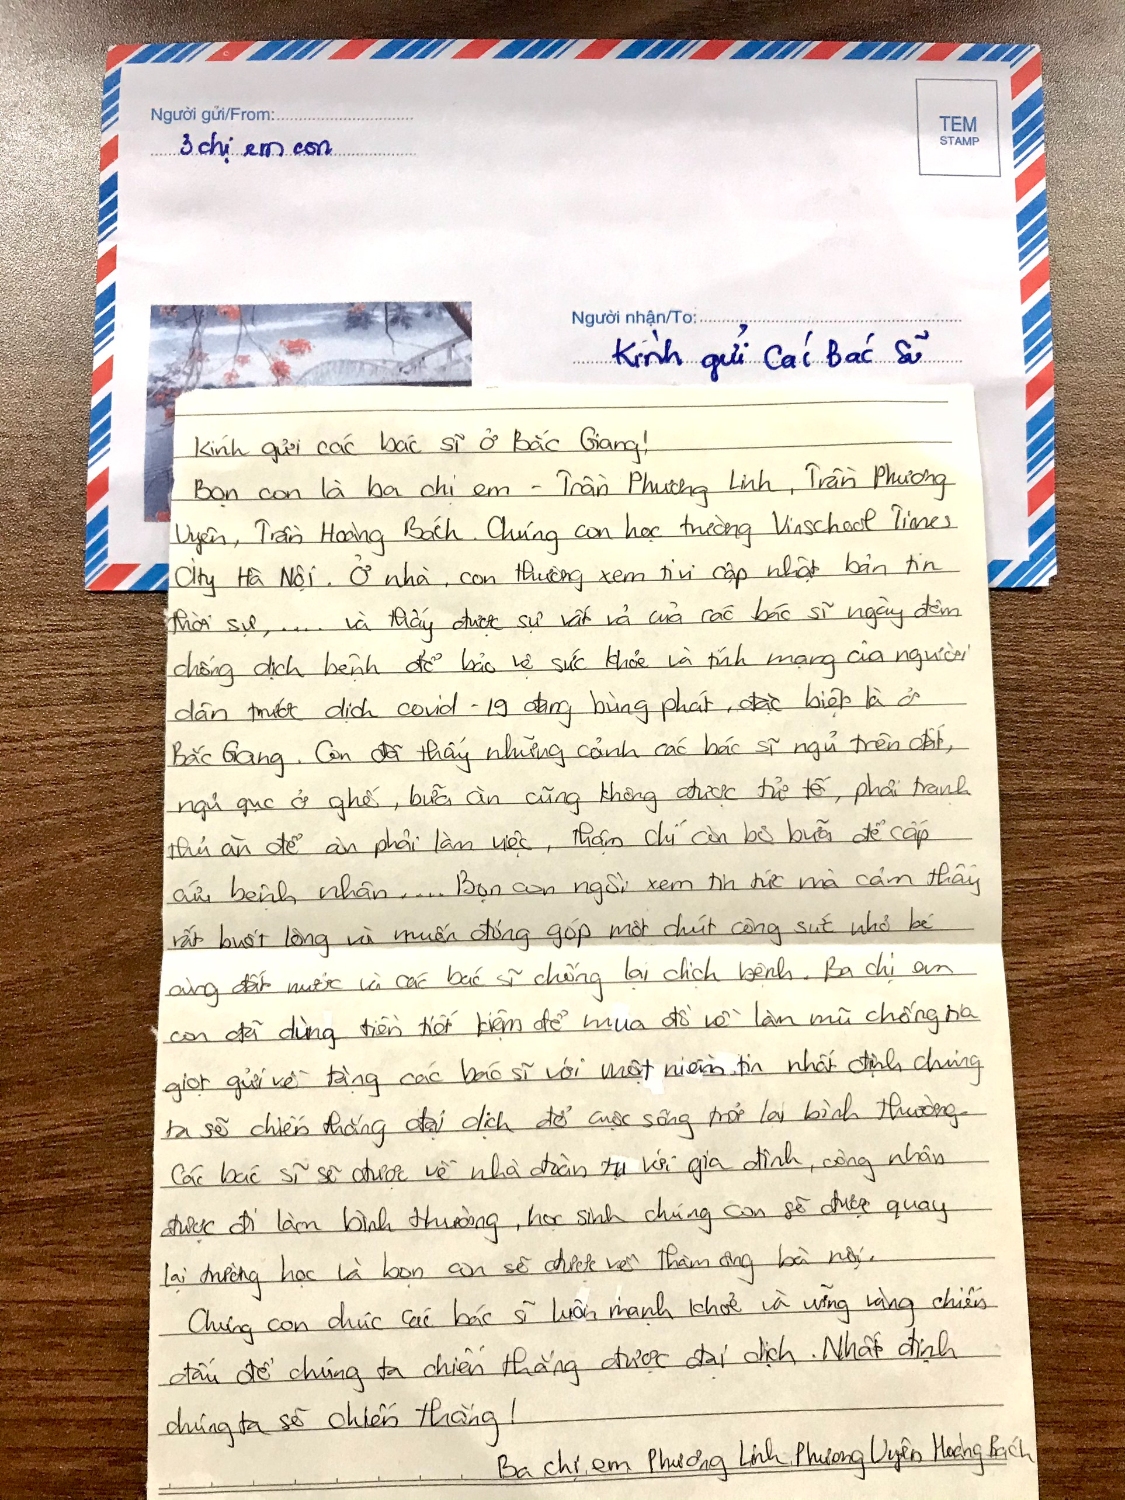 Người gửi/From:
3 chị em con
TEM
STAMP
Người nhận/To:
Kính gửi Các Bác Sĩ
Kính gửi các bác sĩ ở Bắc Giang!
Bọn con là ba chị em - Trần Phương Linh, Trần Phương
Uyên, Trần Hoàng Bách. Chúng con học trường Vinschool Times
City Hà Nội. Ở nhà, con thường xem tivi cập nhật bản tin
thời sự, ..... và thấy được sự vất vả của các bác sĩ ngày đêm
chống dịch bệnh để bảo vệ sức khỏe và tính mạng của người
dân trước dịch covid-19 đang bùng phát, đặc biệt là ở
Bắc Giang. Con đã thấy những cảnh các bác sĩ ngủ trên đất,
ngủ gục ở ghế, bữa ăn cũng không được tử tế, phải tranh
thủ ăn để còn phải làm việc, thậm chí còn bỏ bữa để cấp
cứu bệnh nhân .... Bọn con ngồi xem tin tức mà cảm thấy
rất buốt lòng và muốn đóng góp một chút công sức nhỏ bé
cùng đất nước và các bác sĩ chống lại dịch bệnh. Ba chị em
con đã dùng tiền tiết kiệm để mua đồ về làm mũ chống
giọt gửi về tặng các bác sĩ với một niềm tin nhất định chúng
ta sẽ chiến thắng đại dịch để cuộc sống trở lại bình thường.
Các bác sĩ sẽ được về nhà đoàn tụ với gia đình, công nhân
được đi làm bình thường, học sinh chúng con sẽ được quay
lại trường học và bọn con sẽ được về thăm ông bà nội.
Chúng con chúc các bác sĩ luôn mạnh khoẻ và vững vàng chiến
đấu để chúng ta chiến thắng được đại dịch. Nhất định
chúng ta sẽ chiến thắng!
Ba chị em Phương Linh Phương Uyên Hoàng Bách